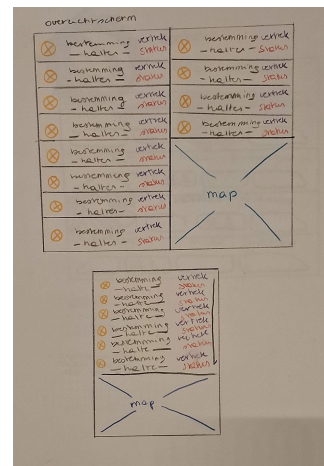 overzichtscherm
bestemming vertrek
-halte- status
bestemming vertrek
-halte- status
bestemming vertrek
-haltes- status
bestemming vertrek
-haltes- status
bestemming vertrek
-haltes- status
bestemming vertrek
-haltes- status
bestemming vertrek
-haltes- status
bestemming vertrek
-haltes- status
bestemming vertrek
-haltes- status
bestemming vertrek
-haltes- status
bestemming vertrek
-haltes- status
bestemming vertrek
-haltes- status
map
bestemming vertrek
-halte- status
bestemming vertrek
-halte- status
bestemming vertrek
-halte- status
bestemming vertrek
-halte- status
bestemming vertrek
-halte- status
bestemming vertrek
-halte- status
map